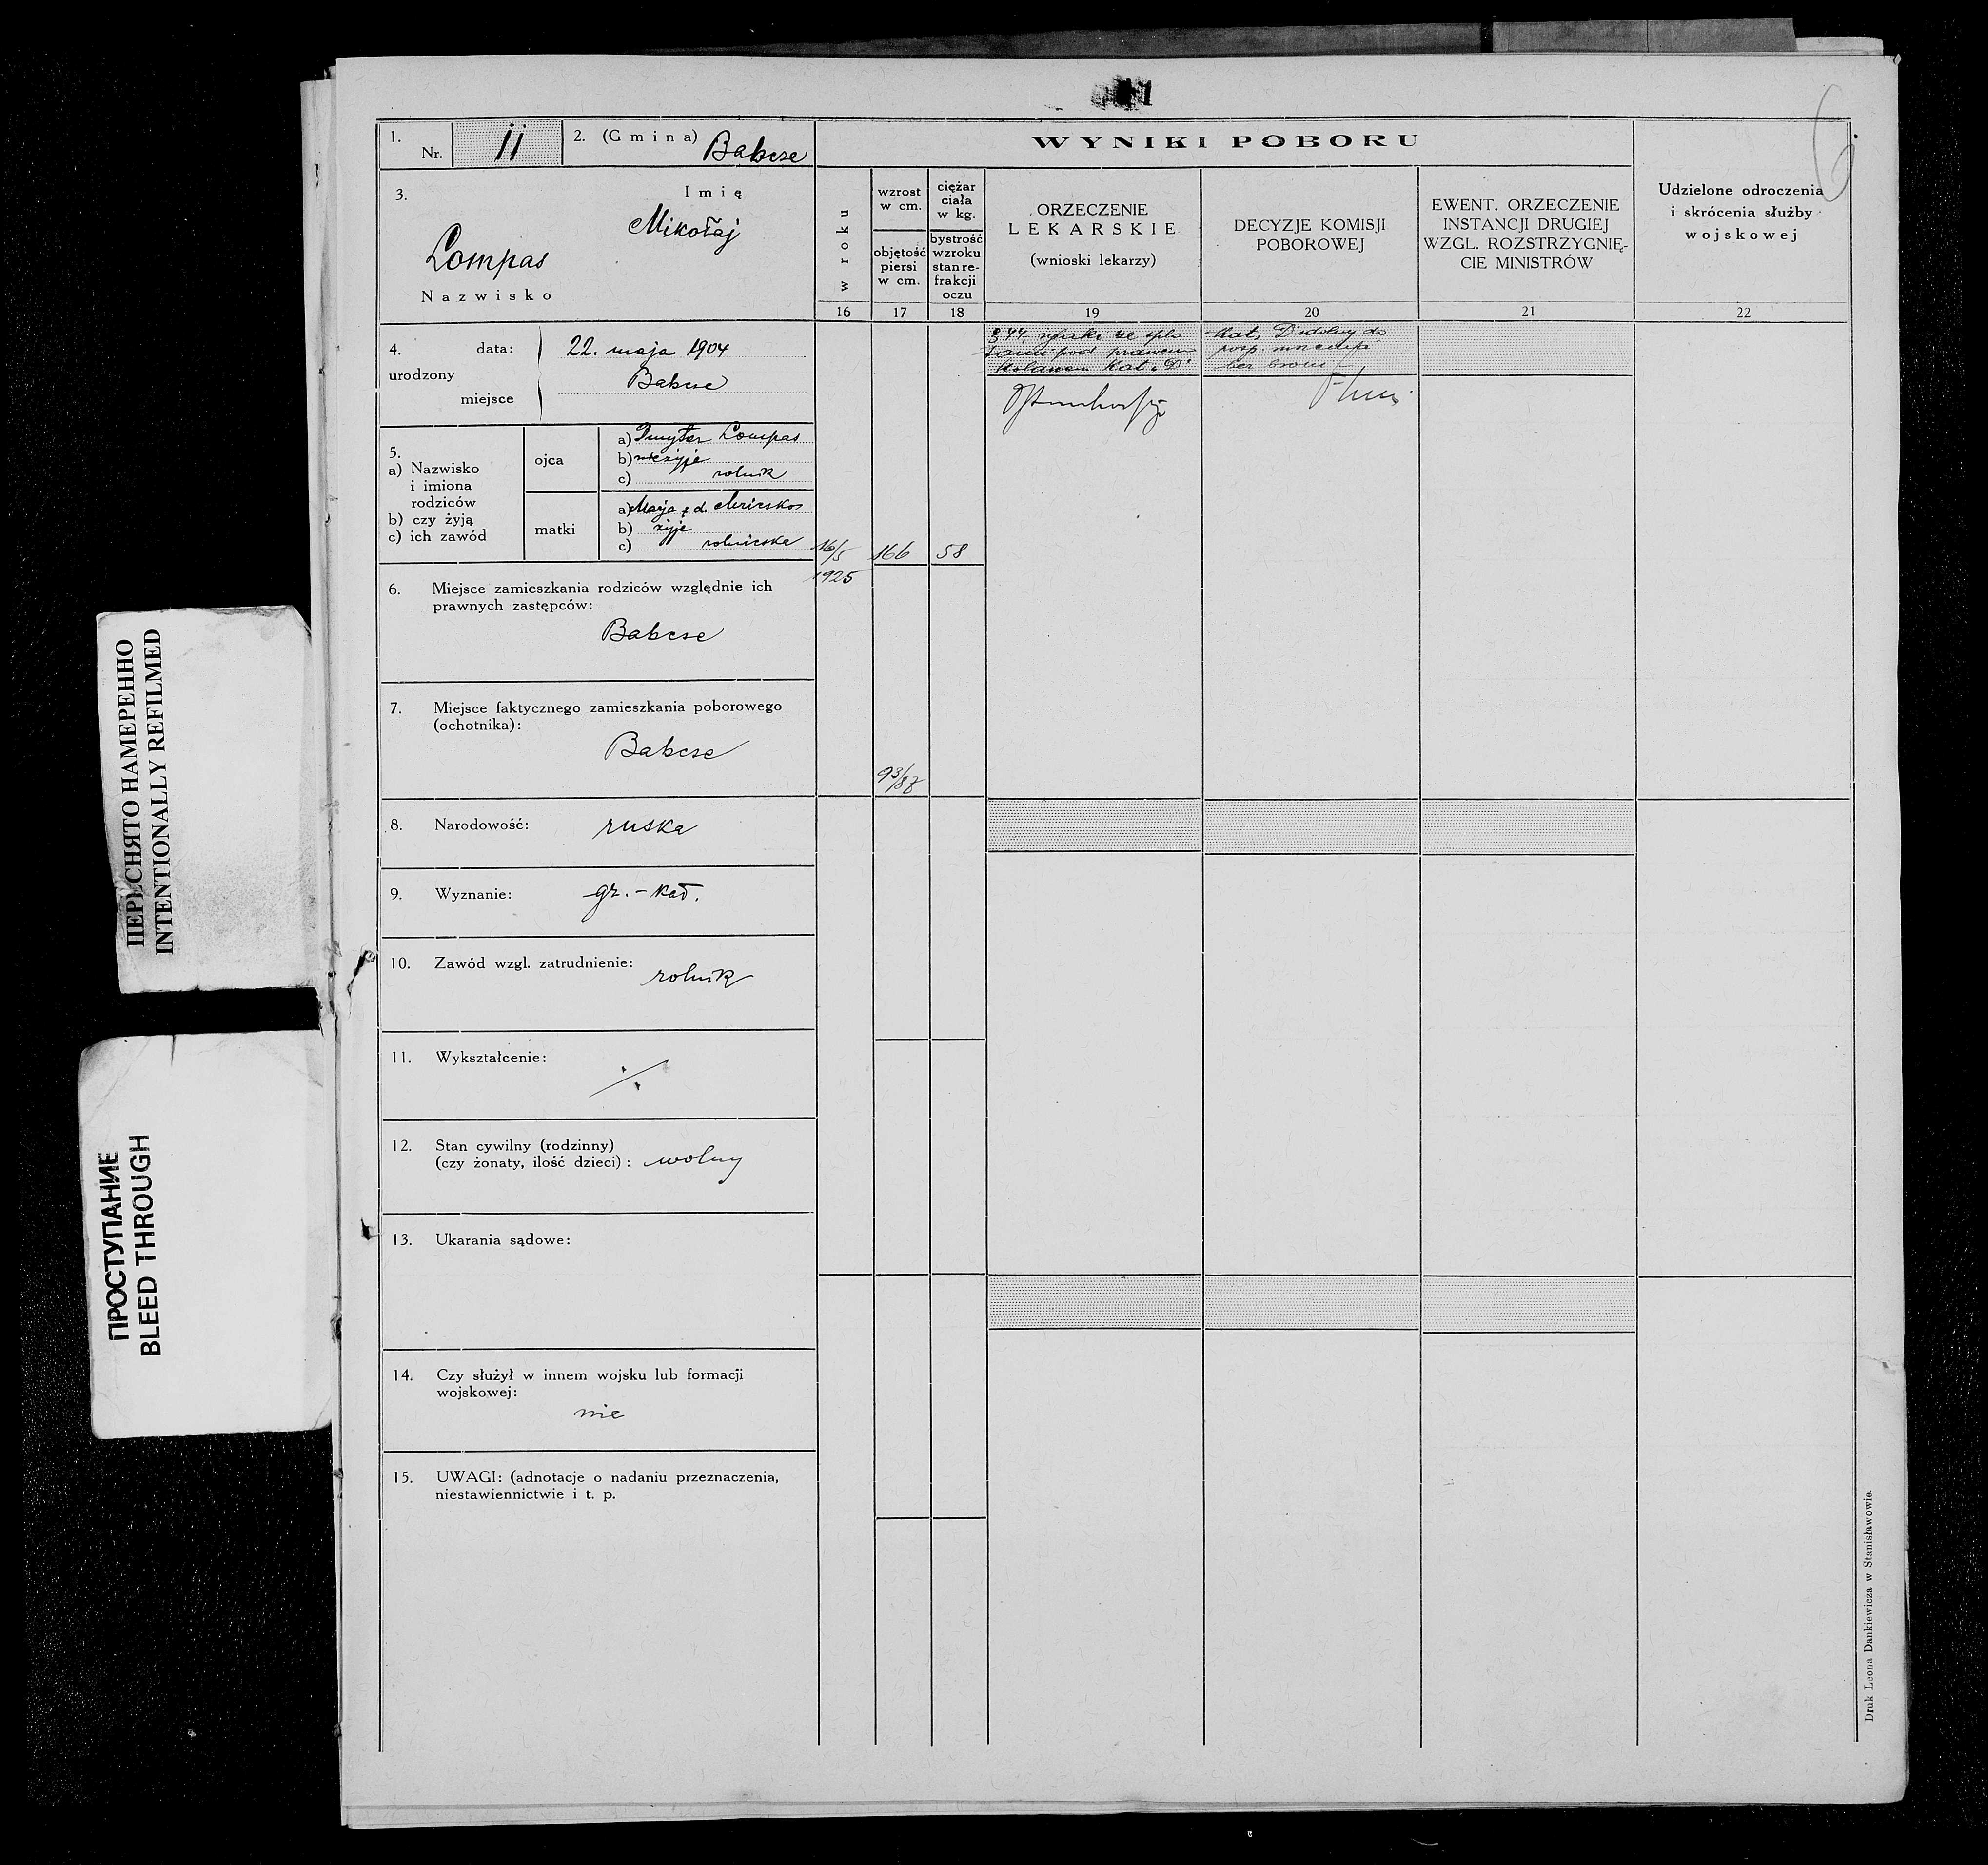 1.
Nr.
11
2. (Gmina) Babcze
WYNIKI POBORU
3.
Imię
Mikołaj
Lompas
Nazwisko
w roku
wzrost
w cm.
objętość
piersi
w cm.
ciężar
ciała
w kg.
bystrość
wzroku
stan re-
frakcji
oczu
ORZECZENIE
LEKARSKIE
(wnioski lekarzy)
DECYZJE KOMISJI
POBOROWEJ
EWENT. ORZECZENIE
INSTANCJI DRUGIEJ
WZGL. ROZSTRZYGNIĘ-
CIE MINISTRÓW
Udzielone odroczenia
i skrócenia służby
wojskowej
16
17
18
19
20
21
22
4.
urodzony
data: 22. maja 1904
miejsce Babcze
§ 44
pod prawem
Kat. D
Kat. D zdolny do
bez broni
5.
a) Nazwisko
i imiona
rodziców
b) czy żyją
c) ich zawód
ojca
a) Dmyter Lompas
b) nie żyje
c) rolnik
matki
a) Marja z d.
b) żyje
c) rolniczka
16/5
1925
166
58
6. Miejsce zamieszkania rodziców względnie ich
prawnych zastępców:
Babcze
7. Miejsce faktycznego zamieszkania poborowego
(ochotnika):
Babcze
8. Narodowość: ruska
9. Wyznanie: gr.-kat.
10. Zawód wzgl. zatrudnienie: rolnik
11. Wykształcenie:
12. Stan cywilny (rodzinny)
(czy żonaty, ilość dzieci): wolny
13. Ukarania sądowe:
14. Czy służył w innem wojsku lub formacji
wojskowej:
nie
15. UWAGI: (adnotacje o nadaniu przeznaczenia,
niestawiennictwie i t. p.
Druk Leona Dankiewicza w Stanisławowie.
ПЕРЕСНЯТО НАМЕРЕННО
INTENTIONALLY REFILMED
ПРОСТУПАНИЕ
BLEED THROUGH